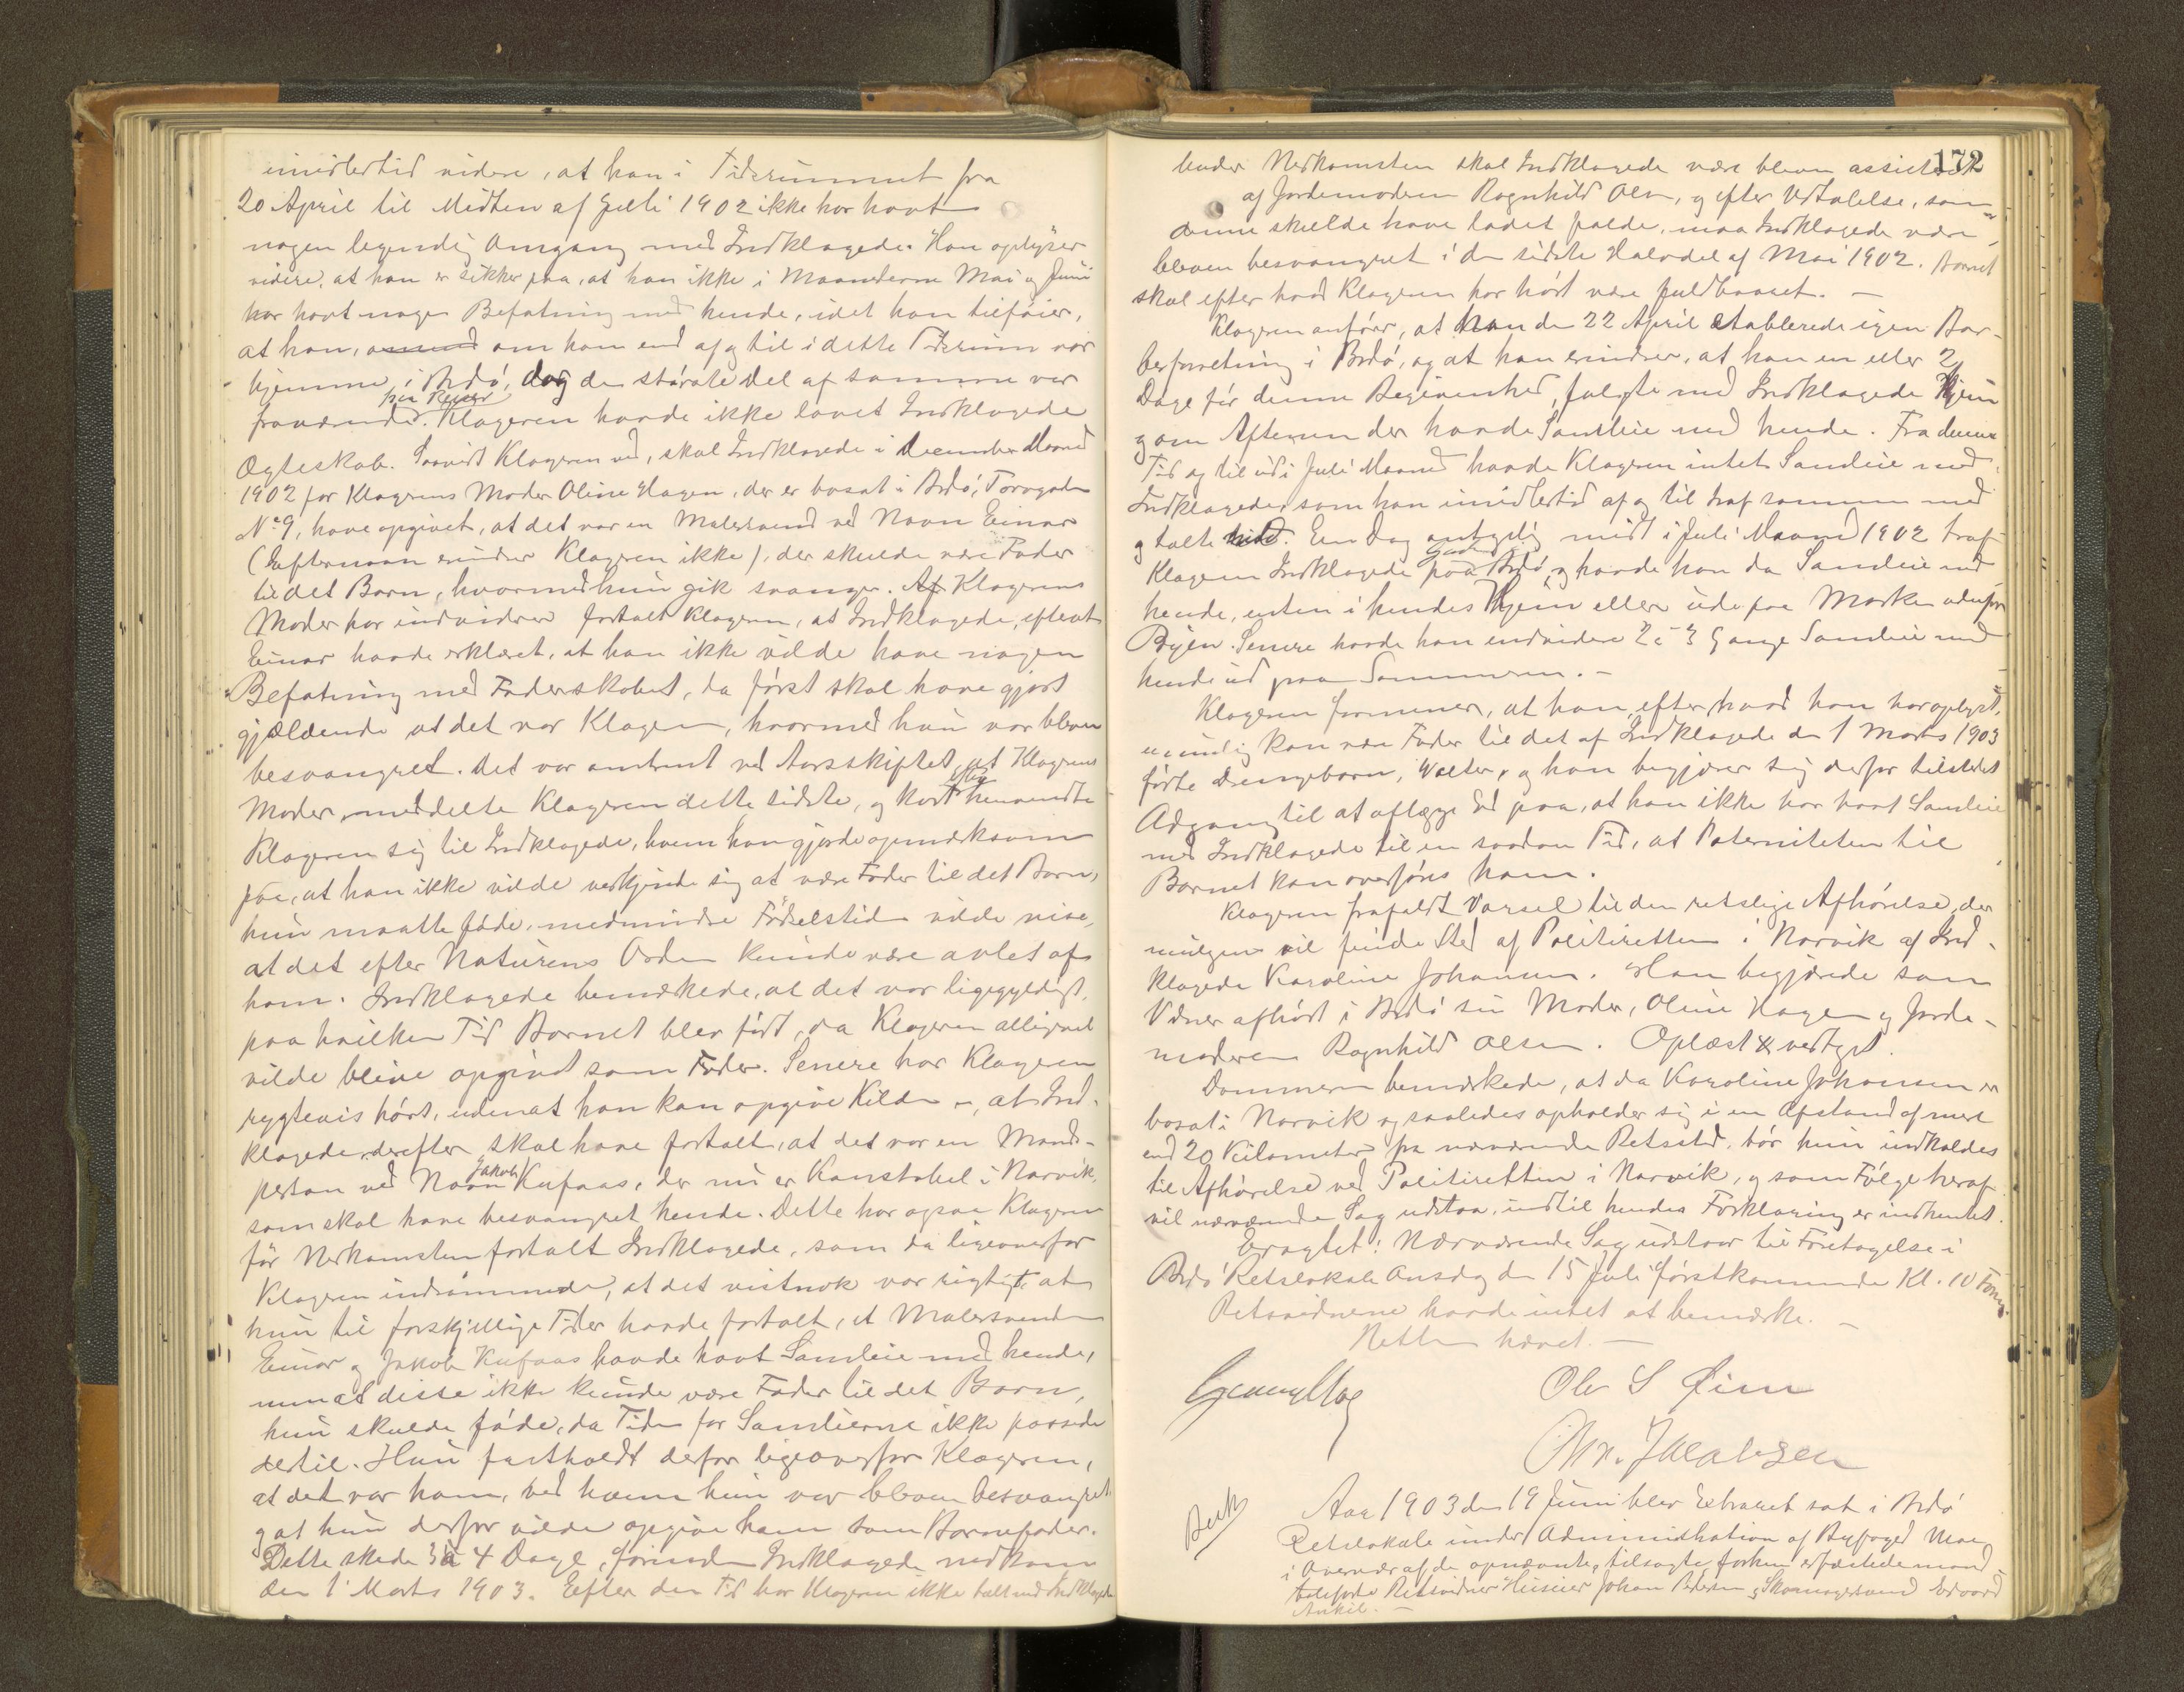 imidlertid videre, at han i Tidsrummet fra
20 April til Midten af Juli 1902 ikke har havt
nogen legemlig Omgang med Indklagede. Han oplyser
videre, at han er sikker paa, at han ikke i Maanderne Mai og Juni
har havt nogen Befatning med hende, idet han tilføier,
at han, om han end af og til i dette Tidsrum var
hjemme i Bodø, dog den største Del af samme var
fraværende paa Reiser. Klageren havde ikke lovet Indklagede
Ægteskab. Saavidt Klageren ved, skal Indklagede i December Maaned
1902 for Klagerens Moder Oline Hagen, der er bosat i Bodø, Torvgaden
No 9, have opgivet, at det var en Malersvend ved Navn Einar
(Efternavn erindrer Klageren ikke), der skulde være Fader
til det Barn, hvormed hun gik svanger. Af Klagerens
Moder har endvidere fortalt Klageren, at Indklagede, efterat
Einar havde erklæret, at han ikke vilde have nogen
Befatning med Faderskabet, da først skal have gjort
gjældende at det var Klageren, hvormed hun var bleven
besvangret. Det var omtrent ved Aarsskiftet, at Klagerens
Moder meddelte Klageren dette sidste, og kort efter henvendte
Klageren sig til Indklagede, hvem han gjorde opmærksom
paa, at han ikke vilde vedkjende sig at være Fader til det Barn,
hun maatte føde, medmindre Fødselstiden vilde vise,
at det efter Naturens Orden kunde være avlet af
ham. Indklagede bemærkede, at det var ligegyldigt,
paa hvilken Tid Barnet blev født, da Klageren alligevel
vilde blive opgivet som Fader. Senere har Klageren
rygtevis hørt, uden at han kan opgive Kilden, at Ind-
klagede derefter skal have fortalt, at det var en Mands-
person ved Navn Jakob Kufaas, der nu er Konstabel i Narvik,
som skal have besvangret hende. Dette har ogsaa Klageren
før Nedkomsten fortalt Indklagede, som da ligeoverfor
Klageren indrømmede, at det vistnok var rigtigt, at
hun til forskjellige Tider havde fortalt, at Malersvenden
Einar og Jakob Kufaas havde havt Samleie med hende,
men at disse ikke kunde være Fader til det Barn,
hun skulde føde, da Tiden for Samleierne ikke passede
dertil. Hun fastholdt derfor ligeoverfor Klageren,
at det var ham, ved hvem hun var bleven besvangret
og at hun derfor vilde opgive ham som Barnefader.
Dette skede 3 à 4 Dage, førend Indklagede nedkom
den 1 Marts 1903. Efter den Tid har Klageren ikke talt med Indklagede
172
Under Nedkomsten skal Indklagede være bleven assisteret
af Jordemoderen Ragnhild Olsen, og efter Udtalelse, som
denne skulde have ladet falde, maa Indklagede være
bleven besvangret i den sidste Halvdel af Mai 1902. Barnet
skal efter hvad Klageren har hørt være fuldbaaret. —
Klageren anfører, at han den 22 April etablerede egen Bar-
berforretning i Bodø, og at han erindrer, at han en eller 2
Dage før denne Begivenhed, fulgte med Indklagede Hjem
og om Aftenen der havde Samleie med hende. Fra denne
Tid og til ud i Juli Maaned havde Klageren intet Samleie med
Indklagede, som han imidlertid af og til traf sammen med
og talte med. En Dag antagelig midt i Juli Maaned 1902 traf
Klageren Indklagede paa Gaden i Bodø, og havde han da Samleie med
hende, enten i hendes Hjem eller ude paa Marken udenfor
Byen. Senere havde han endvidere 2 à 3 Gange Samleie med
hende ud paa Sommeren. —
Klageren formener, at han, efter hvad han har oplyst,
umulig kan være Fader til det af Indklagede den 1 Marts 1903
fødte Drengebarn, Walter, og han begjærer sig derfor tilstedet
Adgang til at aflægge Ed paa, at han ikke har havt Samleie
med Indklagede til en saadan Tid, at Paterniteten til
Barnet kan overføres ham.
Klageren frafaldt Varsel til den retslige Afhørelse, der
muligens vil finde Sted af Politiretten i Narvik af Ind-
klagede Karoline Johansen. Han begjærede som
Vidner afhørt i Bodø sin Moder, Oline Hagen og Jorde-
moderen Ragnhild Olsen. Oplæst & vedtaget.
Dommeren bemærkede, at da Karoline Johansen er
bosat i Narvik og saaledes opholder sig i en Afstand af mere
end 20 Kilometer fra nærværende Retssted, bør hun indkaldes
til Afhørelse ved Politiretten i Narvik, og som Følge heraf
vil nærværende Sag udstaa, indtil hendes Forklaring er indhentet.
Eragtet: Nærværende Sag udstaar til Foretagelse i
Bodø Retslokale Onsdag den 15 Juli førstkommende Kl. 10 Form.
Retsvidnerne havde intet at bemærke. —
Retten hævet. —
Ole S Øien
Chr. Jacobsen
Aar 1903 den 19 Juni blev Extraret sat i Bodø
Retslokale under Administration af Byfoged Moe
i Overvær af de opnævnte, tilsagte, forhen edfæstede mand-
talsførte Retsvidner Huseier Johan Pedersen og Skomagersvend Edvard